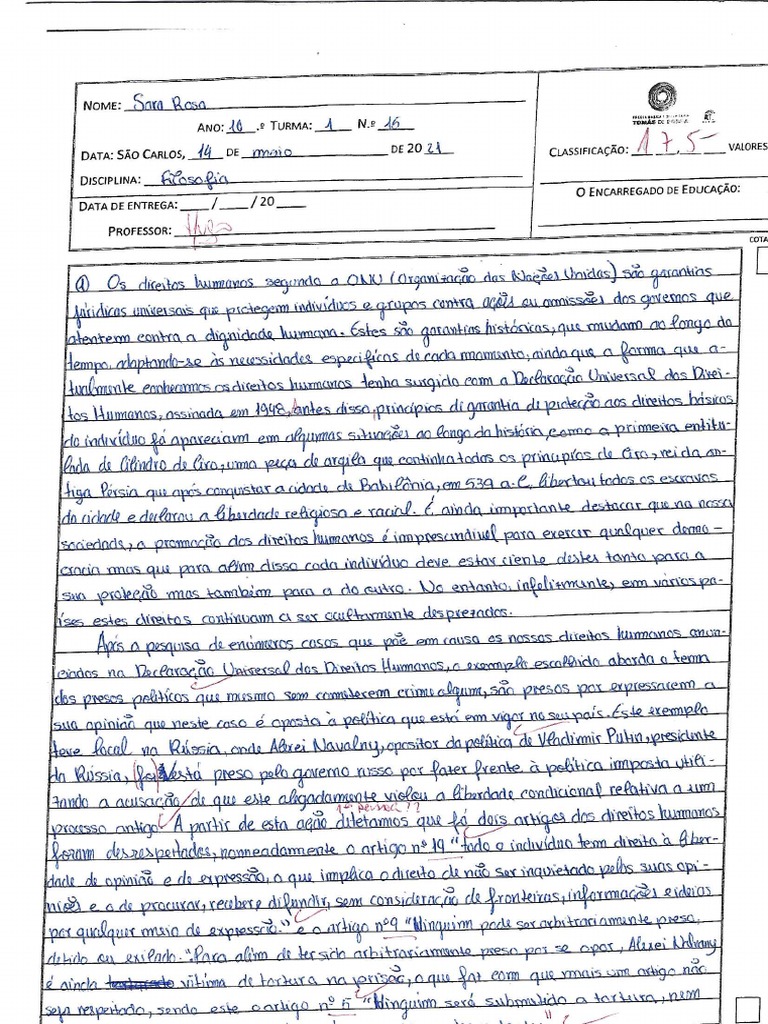 NOME: Sara Rosa
ANO: 10.º TURMA: 1 N.º 16
DATA: SÃO CARLOS, 14 DE maio DE 2021
DISCIPLINA: Filosofia
DATA DE ENTREGA: ___/___/20___
PROFESSOR:
TOMÁS DE BORBA
CLASSIFICAÇÃO: 17,5 - VALORES
O ENCARREGADO DE EDUCAÇÃO:
COTA
a) Os direitos humanos segundo a ONU (Organização das Nações Unidas) são garantias
jurídicas universais que protegem indivíduos e grupos contra ações ou omissões dos governos que
atentem contra a dignidade humana. Estes são garantias históricas, que mudam ao longo do
tempo, adaptando-se às necessidades especificas de cada momento, ainda que a forma que a-
tualmente conhecemos os direitos humanos tenha surgido com a Declaração Universal dos Direi-
tos Humanos, assinada em 1948, antes disso, princípios di garantia de proteção aos direitos básicos
do indivíduo já apareciam em algumas situações ao longo da história, como a primeira entitu-
lada de Cilindro de Ciro, uma peça de argila que continha todos os princípios de Ciro, rei da an-
tiga Pérsia que após conquistar a cidade de Babilônia, em 539 a.C, libertou todos os escravos
da cidade e declarou a liberdade religiosa e racial. É ainda importante destacar que na nossa
sociedade, a promoção dos direitos humanos é imprescindivel para exercer qualquer demo-
cracia mas que para além disso cada indivíduo deve estar ciente destes tanto para a
sua proteção mas também para a do outro. No entanto, infelizmente, em vários pa-
íses estes direitos continuam a ser ocultamente desprezados.
Após a pesquisa de enúmeros casos que põe em causa os nossos direitos humanos anun-
ciados na Declaração Universal dos Direitos Humanos, o exemplo escolhido aborda o tema
dos presos políticos que mesmo sem cometerem crime algum, são presos por expressarem a
sua opinião que neste caso é oposta à política que está em vigor no seu país. Este exemplo
teve local na Rússia, onde Alexei Navalny, opositor da política de Vladimir Putin, presidente
da Rússia, está preso pelo governo russo por fazer frente à política imposta utili-
zando a acusação de que este alegadamente violou a liberdade condicional relativa a um
1ª pessoa??
processo antigo. A partir de esta ação diletamos que já dois artigos dos direitos humanos
foram desrespeitados, nomeadamente o artigo nº 19 "todo o indivíduo tem direito à liber-
dade de opinião e de expressão, o que implica o direito de não ser inquietado pelas suas opi-
niões e o de procurar, receber e difundir, sem consideração de fronteiras, informações e ideias
por qualquer meio de expressão." e o artigo nº 9 "Ninguém pode ser arbitrariamente preso,
detido ou exilado." Para além de ter sido arbitrariamente preso por se opor, Alexei Nalvany
é ainda torturado vítima de tortura na prisão, o que faz com que mais um artigo não
seja respeitado, sendo este o artigo nº 5 "Ninguém será submetido a tortura, nem